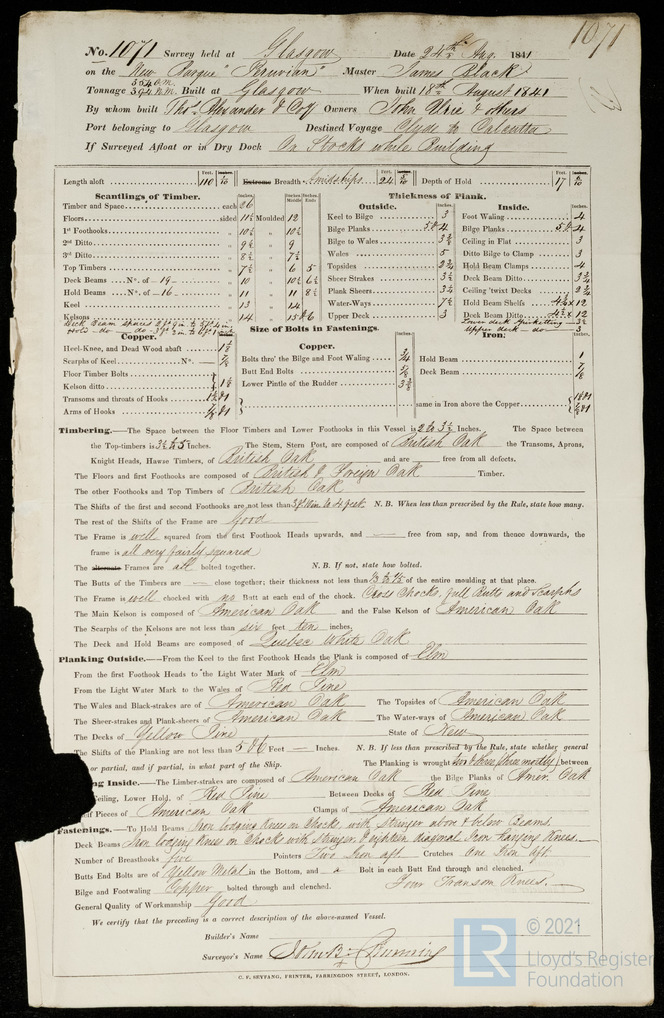 1071
No. 1071 Survey held at Glasgow Date 24th Aug. 1841
on the New Barque "Peruvian" Master James Black
Tonnage 354 O.M. 394 N.M. Built at Glasgow When built 18th August 1841
By whom built Thos. Alexander & Coy Owners John & others
Port belonging to Glasgow Destined Voyage Clyde to Calcutta
If Surveyed Afloat or in Dry Dock On Stocks while Building
Length aloft 110 Extreme Breadth Amidships 24 Depth of Hold 17
Scantlings of Timber.
Timber and Space each 26
Floors sided 11½ Moulded 12
1st Foothooks 10½ 10½
2nd Ditto 9½ 9
3rd Ditto 8½ 7½
Top Timbers 7½ 6 5
Deck Beams No. of 19 10 10½ 6½
Hold Beams No. of 16 11 11 8½
Keel 13 14
Kelsons 14 15 & 6
Thickness of Plank.
Outside.
Keel to Bilge 3
Bilge Planks 5 & 4
Bilge to Wales 3½
Wales 5
Topsides
Sheer Strakes 3½
Plank Sheers 3½
Water-Ways 7½
Upper Deck 3
Inside.
Foot Waling 4
Bilge Planks 5 & 4
Ceiling in Flat 3
Ditto Bilge to Clamp 3
Hold Beam Clamps 4
Deck Beam Ditto
Ceiling 'twixt Decks
Hold Beam Shelves 12
Deck Beam Ditto 12
Lower deck Spirketting
Upper deck do 3
Size of Bolts in Fastenings.
Copper.
Heel-Knee, and Dead Wood abaft
Scarphs of Keel No. 7/8
Floor Timber Bolts
Kelson ditto
Transoms and throats of Hooks
Arms of Hooks
Copper.
Bolts thro' the Bilge and Foot Waling 3/4
Butt End Bolts
Lower Pintle of the Rudder
Iron.
Hold Beam 1
Deck Beam 7/8
same in Iron above the Copper
Timbering.—The Space between the Floor Timbers and Lower Foothooks in this Vessel is 2 to 3½ Inches. The Space between
the Top-timbers is 3½ to 5 Inches. The Stem, Stern Post, are composed of British Oak the Transoms, Aprons,
Knight Heads, Hawse Timbers, of British Oak and are free from all defects.
The Floors and first Foothooks are composed of British & Foreign Oak Timber.
The other Foothooks and Top Timbers of British Oak
The Shifts of the first and second Foothooks are not less than 3 ft 10 in to 4 feet N. B. When less than prescribed by the Rule, state how many.
The rest of the Shifts of the Frame are Good
The Frame is well squared from the first Foothook Heads upwards, and — free from sap, and from thence downwards, the
frame is all very fairly squared
The alternate Frames are all bolted together. N. B. If not, state how bolted.
The Butts of the Timbers are — close together; their thickness not less than 1/3 to 1/2 of the entire moulding at that place.
The Frame is well chocked with no Butt at each end of the chock. Cross Chocks, full Butts and Scarphs
The Main Kelson is composed of American Oak and the False Kelson of American Oak
The Scarphs of the Kelsons are not less than six feet ten inches.
The Deck and Hold Beams are composed of Quebec White Oak
Planking Outside.—From the Keel to the first Foothook Heads the Plank is composed of Elm
From the first Foothook Heads to the Light Water Mark of Elm
From the Light Water Mark to the Wales of Red Pine
The Wales and Black-strakes are of American Oak The Topsides of American Oak
The Sheer-strakes and Plank-sheers of American Oak The Water-ways of American Oak
The Decks of Yellow Pine State of New
The Shifts of the Planking are not less than 5 & 6 Feet — Inches. N. B. If less than prescribed by the Rule, state whether general
or partial, and if partial, in what part of the Ship. The Planking is wrought two & three (three mostly) between
ing Inside.—The Limber-strakes are composed of American Oak the Bilge Planks of Amer. Oak
Ceiling, Lower Hold, of Red Pine Between Decks of Red Pine
lf Pieces of American Oak Clamps of American Oak
Fastenings.—To Hold Beams Iron lodging Knees on Chocks with stringer above & below Beams.
Deck Beams Iron lodging Knees on Chocks with stringer & eighteen diagonal Iron hanging Knees.
Number of Breasthooks five Pointers Two Iron aft. Crutches One Iron aft.
Butts End Bolts are of Yellow Metal in the Bottom, and a Bolt in each Butt End through and clenched.
Bilge and Footwaling Copper bolted through and clenched. Four Transom Knees.
General Quality of Workmanship Good
We certify that the preceding is a correct description of the above-named Vessel.
Builder's Name
Surveyor's Name John B. Cumming
C. F. SEYFANG, PRINTER, FARRINGDON STREET, LONDON.
LR © 2021
Lloyd's Register
Foundation